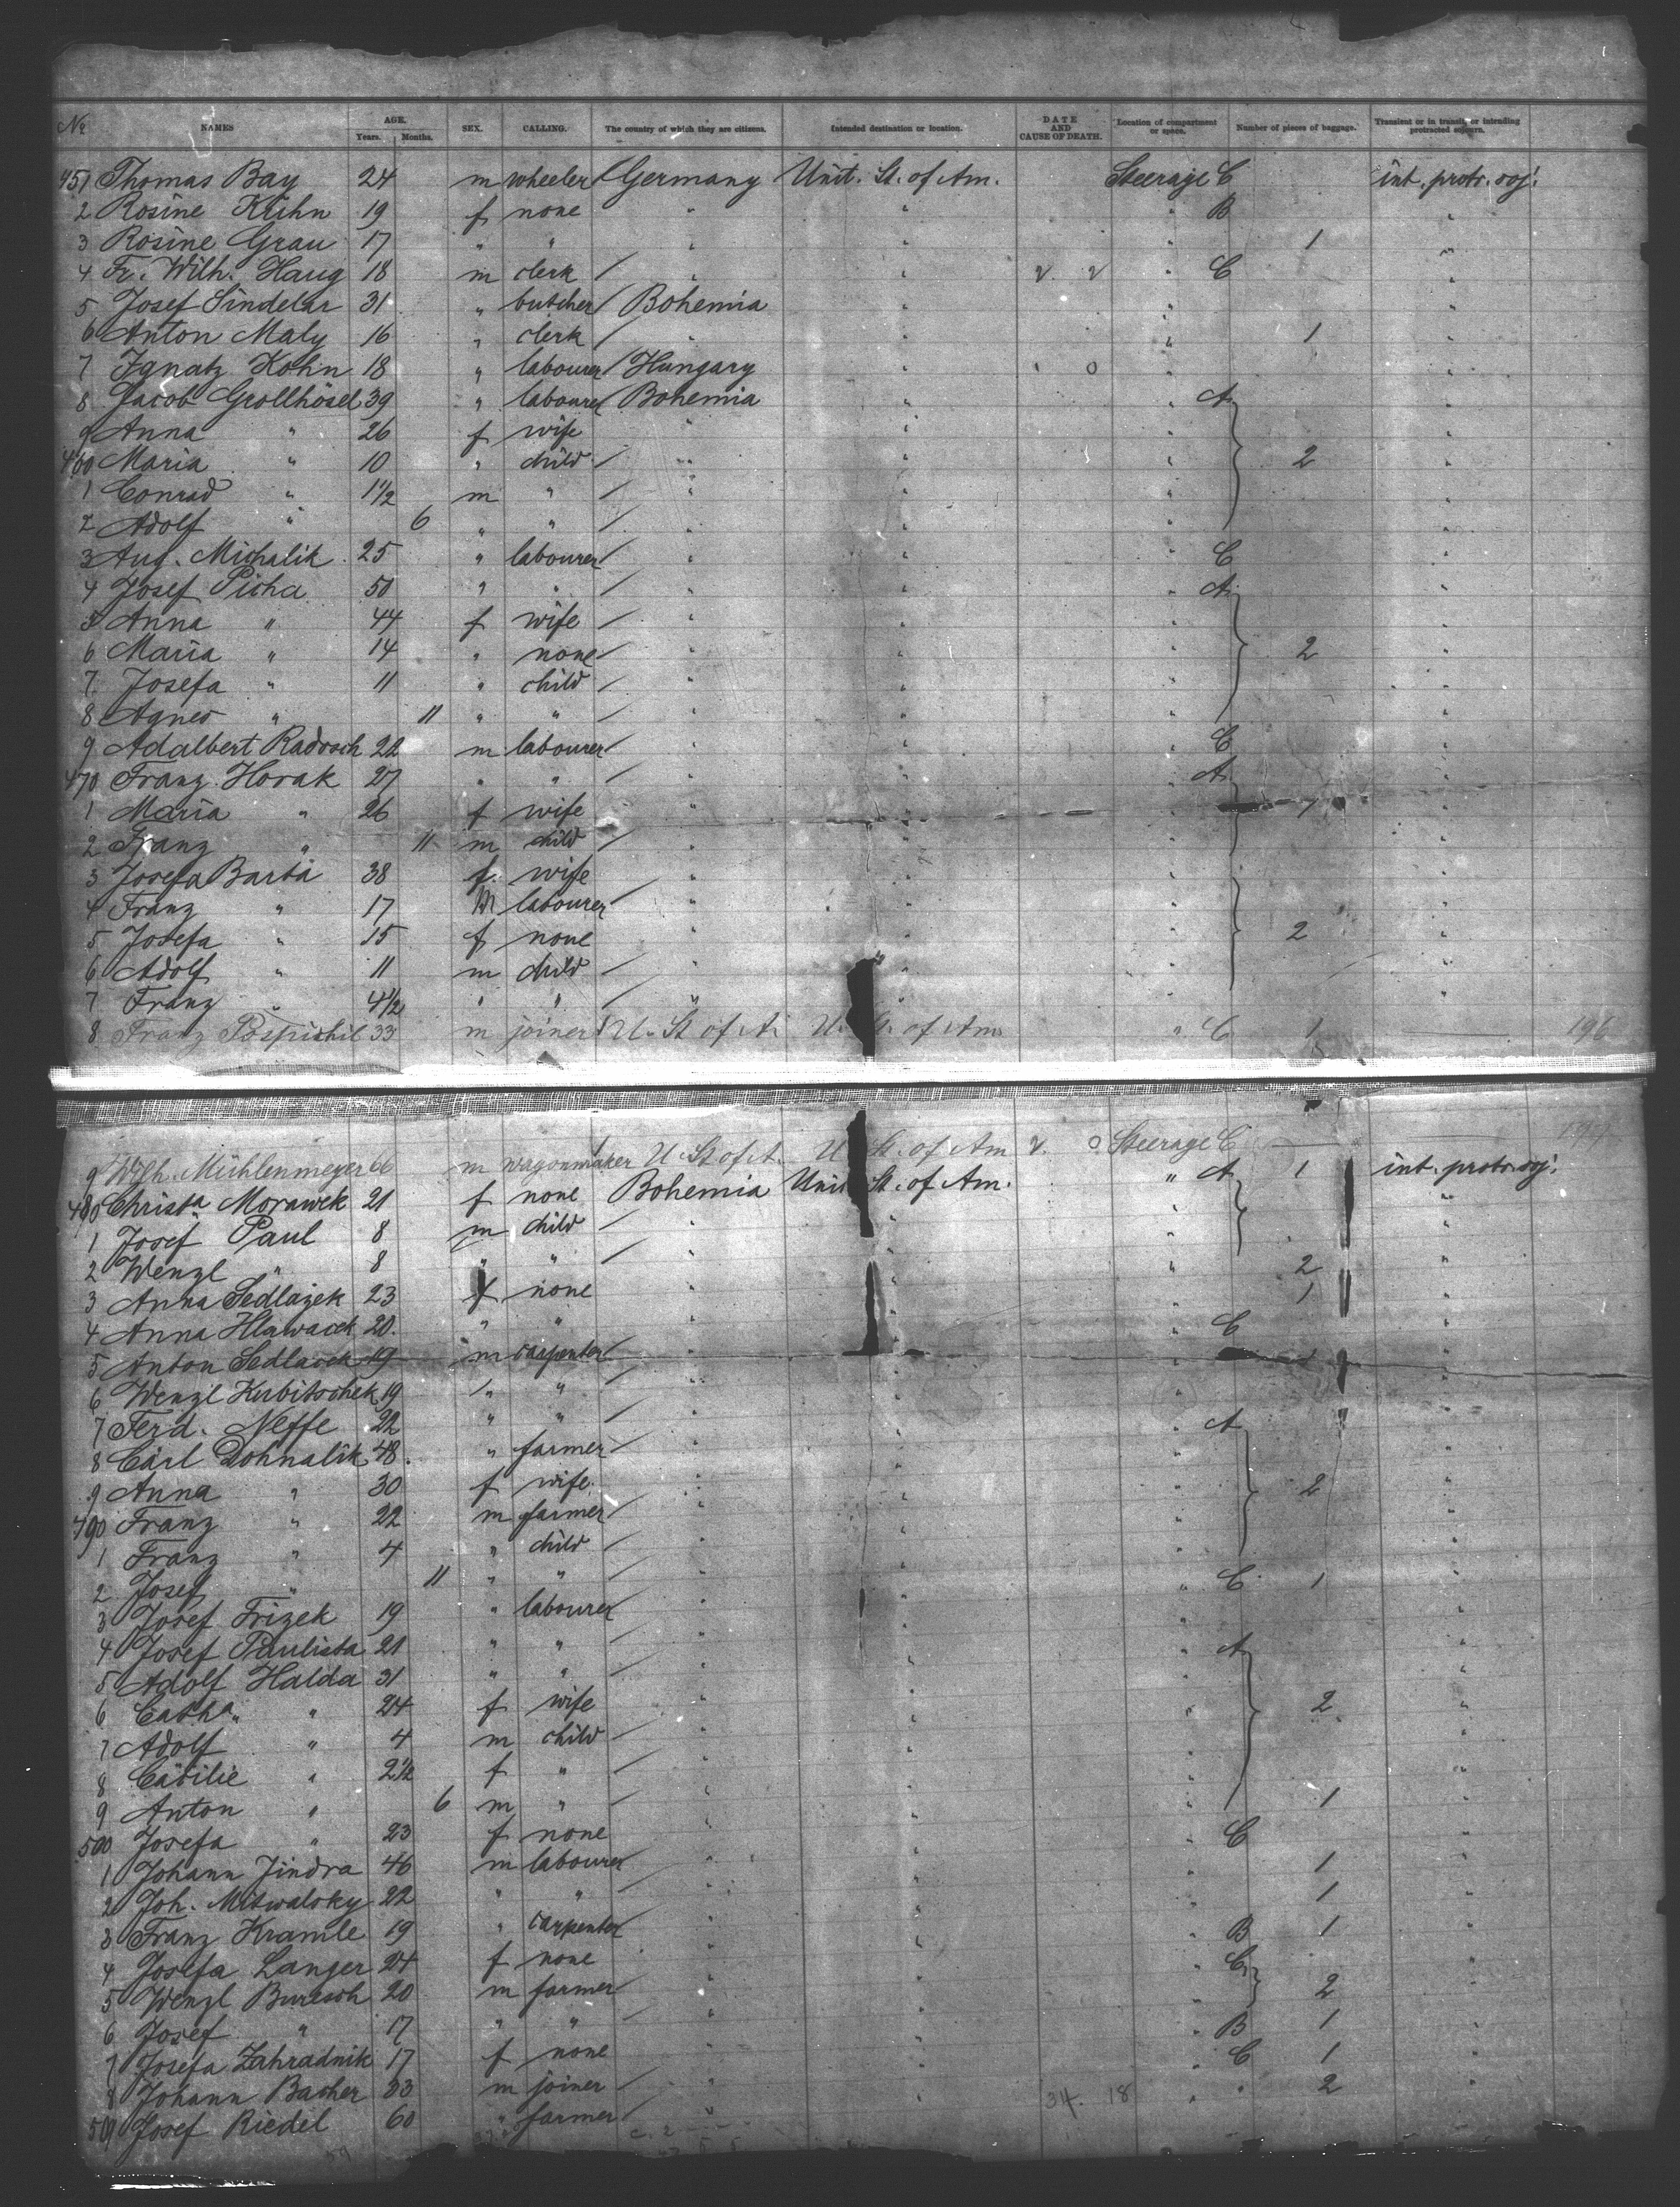 No NAMES AGE. Years. Months. SEX. CALLING. The country of which they are citizens. Intended destination or location. DATE AND CAUSE OF DEATH. Location of compartment or space. Number of pieces of baggage. Transient or in transit, or intending protracted sojourn.
451 Thomas Bay 24 m wheeler Germany Unit. St. of Am. Steerage C int. protr. soj.
2 Rosine Krihn 19 f none " " " B "
3 Rosine Grau 17 " " " " " 1 "
4 Fr. Wilh. Haug 18 m clerk / " " " C "
5 Josef Sindelar 31 " butcher / Bohemia " " "
6 Anton Maly 16 " clerk / " " " 1 "
7 Ignatz Kohn 18 " labourer / Hungary " " "
8 Jacob Grollhösel 39 " labourer / Bohemia " " A "
9 Anna " 26 f wife " " " "
460 Maria " 10 " child / " " " 2 "
1 Conrad " 1 1/2 m " / " " " "
2 Adolf " 6 " " / " " "
3 Aug. Michalik 25 " labourer / " " C "
4 Josef Picha 50 " " / " " " A "
5 Anna " 44 f wife / " " " "
6 Maria " 14 " none / " " " 2 "
7 Josefa " 11 " child / " " " "
8 Agnes " 11 " " / " " " "
9 Adalbert Radosch 22 m labourer / " " " C "
470 Franz Horak 27 " " / " " " A "
1 Maria " 26 f wife " " " 1 "
2 Franz " 11 m child / " " " "
3 Josefa Barta 38 f wife " " " "
4 Franz " 17 m labourer / " " " "
5 Josefa " 15 f none " " " 2 "
6 Adolf " 11 m child / " " " "
7 Franz " 4 1/2 " " / " " " "
8 Franz Pospischil 33 m joiner / U. St of A U. St. of Am " C 1 196
9 Wilh. Mühlenmeyer 66 m wagonmaker U. St of A. U. St. of Am Steerage C
480 Christa Morawek 21 f none Bohemia Unit. St. of Am. " A 1 int. protr. soj.
1 Josef Paul 8 m child / " " " "
2 Wenzl " 8 " " / " " " 2 "
3 Anna Sedlazek 23 f none " " " 1 "
4 Anna Hlawacek 20. " " " " " C "
5 Anton Sedlacek 19 m carpenter / " " " "
6 Wenzl Kubitschek 19 " " / " " " "
7 Ferd. Neffe 22 " " / " " " A "
8 Carl Dohnalik 48. " farmer / " " " "
9 Anna " 30 f wife " " " 2 "
490 Franz " 22 m farmer / " " " "
1 Franz " 4 " child / " " " "
2 Josef " 11 " " / " " " C 1 "
3 Josef Frizek 19 " labourer / " " " "
4 Josef Paulista 21 " " / " " " A "
5 Adolf Halda 31 " " / " " " "
6 Catha. " 24 f wife " " " 2 "
7 Adolf " 4 m child / " " " "
8 Cäcilie " 2 1/2 f " / " " " "
9 Anton " 6 m " / " " " 1 "
500 Josefa " 23 f none " " " C "
1 Johann Jindra 46 m labourer / " " " 1 "
2 Joh. Mitwalsky 22 " " / " " " 1 "
3 Franz Kramle 19 " carpenter / " " " B 1 "
4 Josefa Langer 24 f none " " " C "
5 Wenzl Buresch 20 m farmer / " " " 2 "
6 Josef " 17 " " / " " " B 1 "
7 Josefa Zahradnik 17 f none " " " C 1 "
8 Johann Bacher 33 m joiner / " " " " 2 "
509 Josef Riedel 60 " farmer / " " 34. 18 " "
59